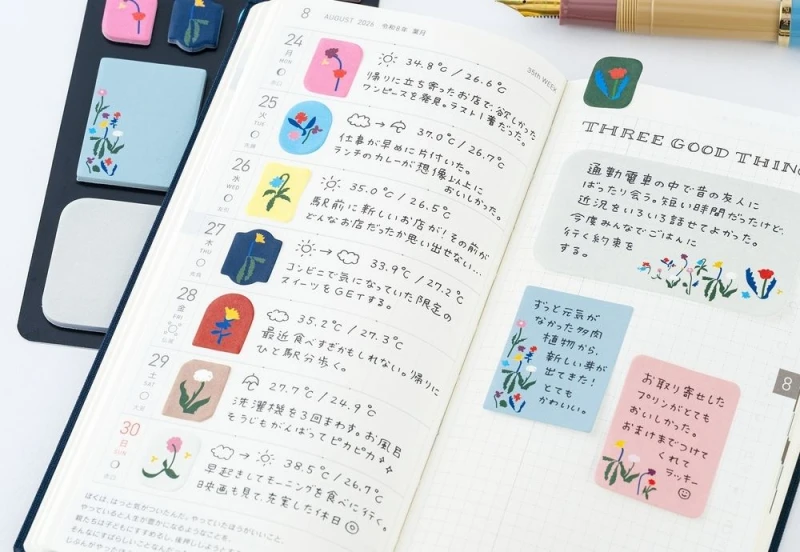 8 AUGUST 2026 令和8年 葉月
35th WEEK
24
月
MON
34.8℃/26.6℃
帰りに立ち寄ったお店で、欲しかった
ワンピースを発見。ラスト1着だった。
25
火
TUE
→ 37.0℃/26.7℃
仕事が早めに片付いた。
ランチのカレーが想像以上に
おいしかった。
26
水
WED
35.0℃/26.5℃
駅前に新しいお店が!その前が
どんなお店だったか思い出せない…
27
木
THU
→ 33.9℃/27.2℃
コンビニで気になっていた限定の
スイーツをGETする。
28
金
FRI
35.2℃/27.3℃
最近食べすぎかもしれない。帰りに
ひと駅分歩く。
29
土
SAT
27.7℃/24.9℃
洗濯機を3回まわす。お風呂
そうじもがんばってピカピカ
30
日
SUN
→ 38.5℃/26.7℃
早起きしてモーニングを食べに行く。
映画も見て、充実した休日
ぼくは、はっと気がついたんだ。やっていたほうがいいこと、
やっていると人生が豊かになるようなことを、
親たちは子どもにすすめるし、後押ししようとする
そんなにすばらしいことなんだった
THREE GOOD THIN
通勤電車の中で昔の友人に
ばったり会う。短い時間だったけど、
近況をいろいろ話せてよかった。
今度みんなでごはんに
行く約束を
する。
ずっと元気が
なかった多肉
植物から、
新しい芽が
出てきた!
とても
かわいい。
お取り寄せした
プリンがとても
おいしかった。
おまけまでつけて
くれて
ラッキー
8